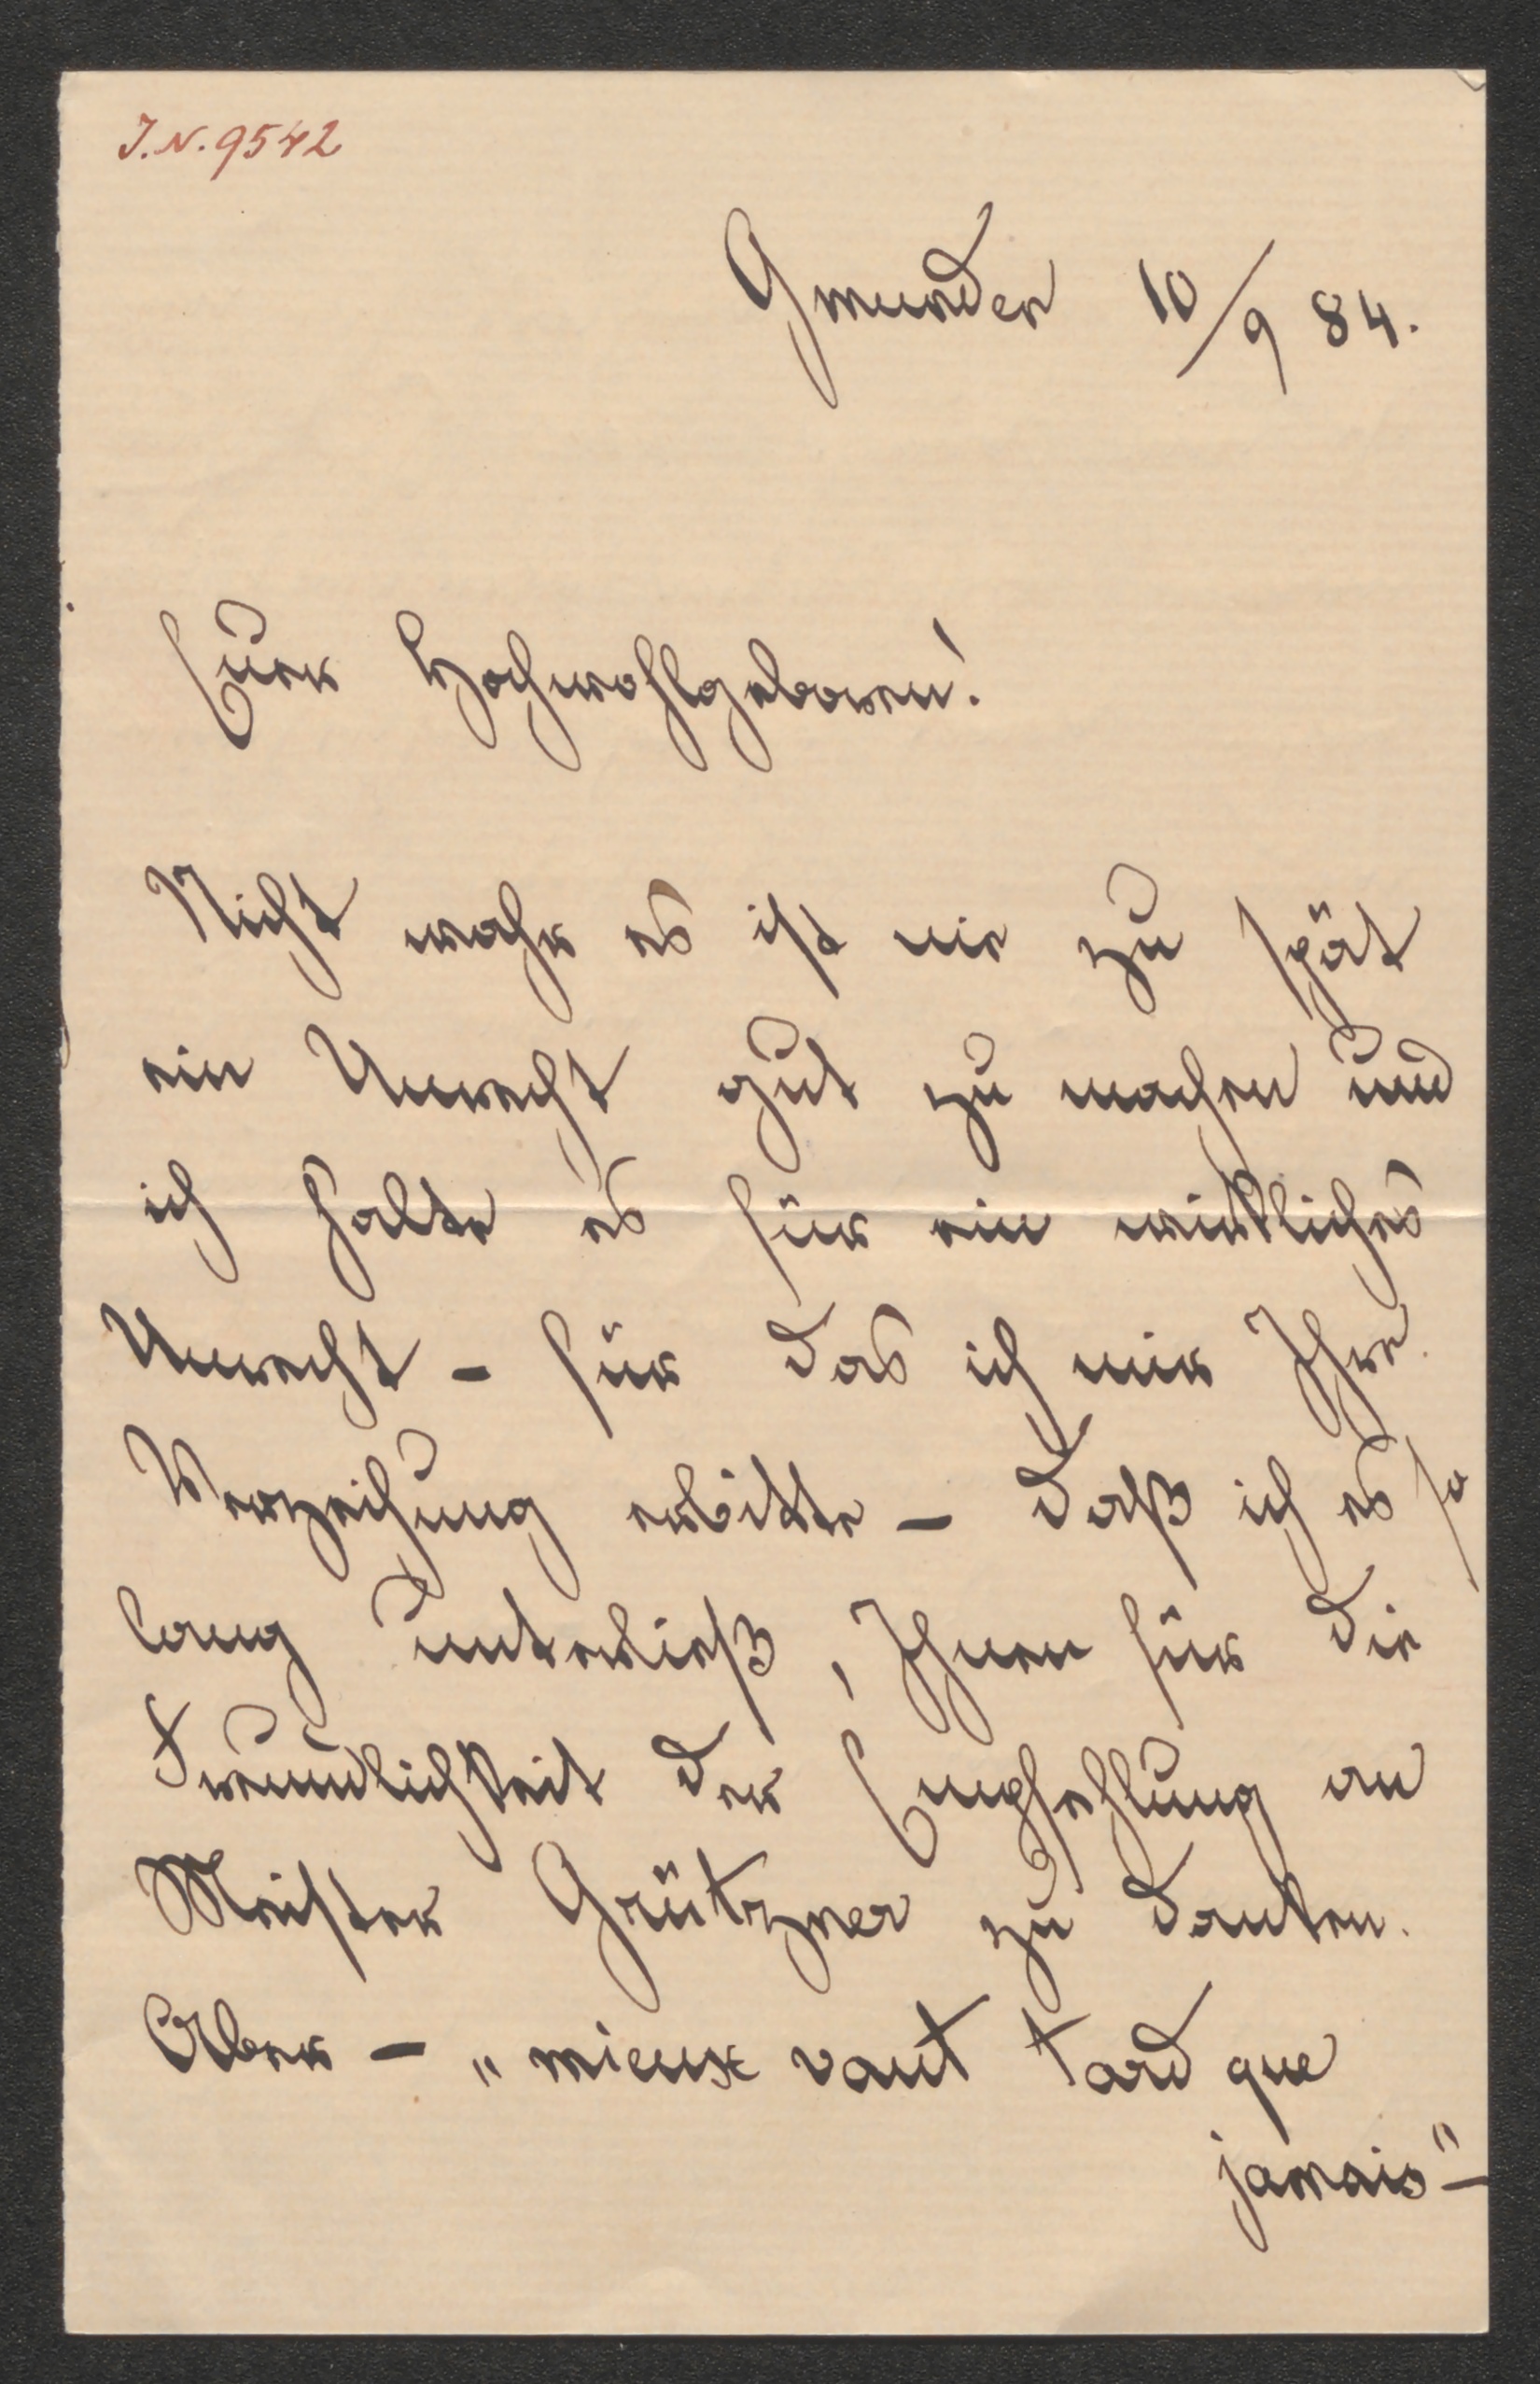 J.N. 9542
Gmunden 10/9 84.
Euer Hochwohlgeboren!
Nicht wahr es ist nie zu spät
ein Unrecht gut zu machen und
ich halte es für ein wirkliches
Unrecht – für das ich mir Ihre
Verzeihung erbitte – daß ich es so
lang unterließ, Ihnen für die
Freundlichkeit der Empfehlung an
Meister Grützner zu danken.
Aber – „mieux vaut tard que
jamais" –